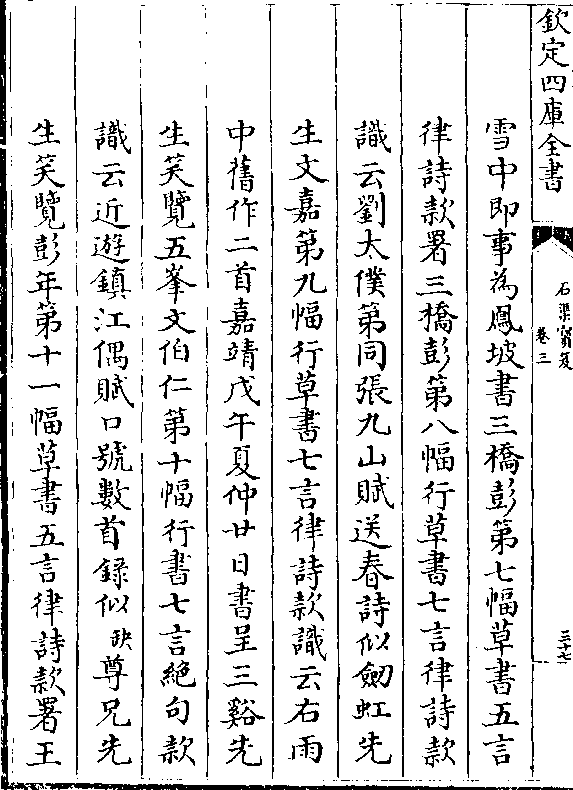 欽定四庫全書
石渠寳笈
卷三
三十七
雪中即事為鳳坡書三橋彭第七幅草書五言
律詩款署三橋彭第八幅行草書七言律詩款
識云劉太僕第同張九山賦送春詩似劒虹先
生文嘉第九幅行草書七言律詩款識云右雨
中舊作二首嘉靖戊午夏仲廿日書呈三谿先
生笑覽五峯文伯仁第十幅行書七言絶句款
識云近遊鎮江偶賦口號數首録似缺尊兄先
生笑覽彭年第十一幅草書五言律詩款署王